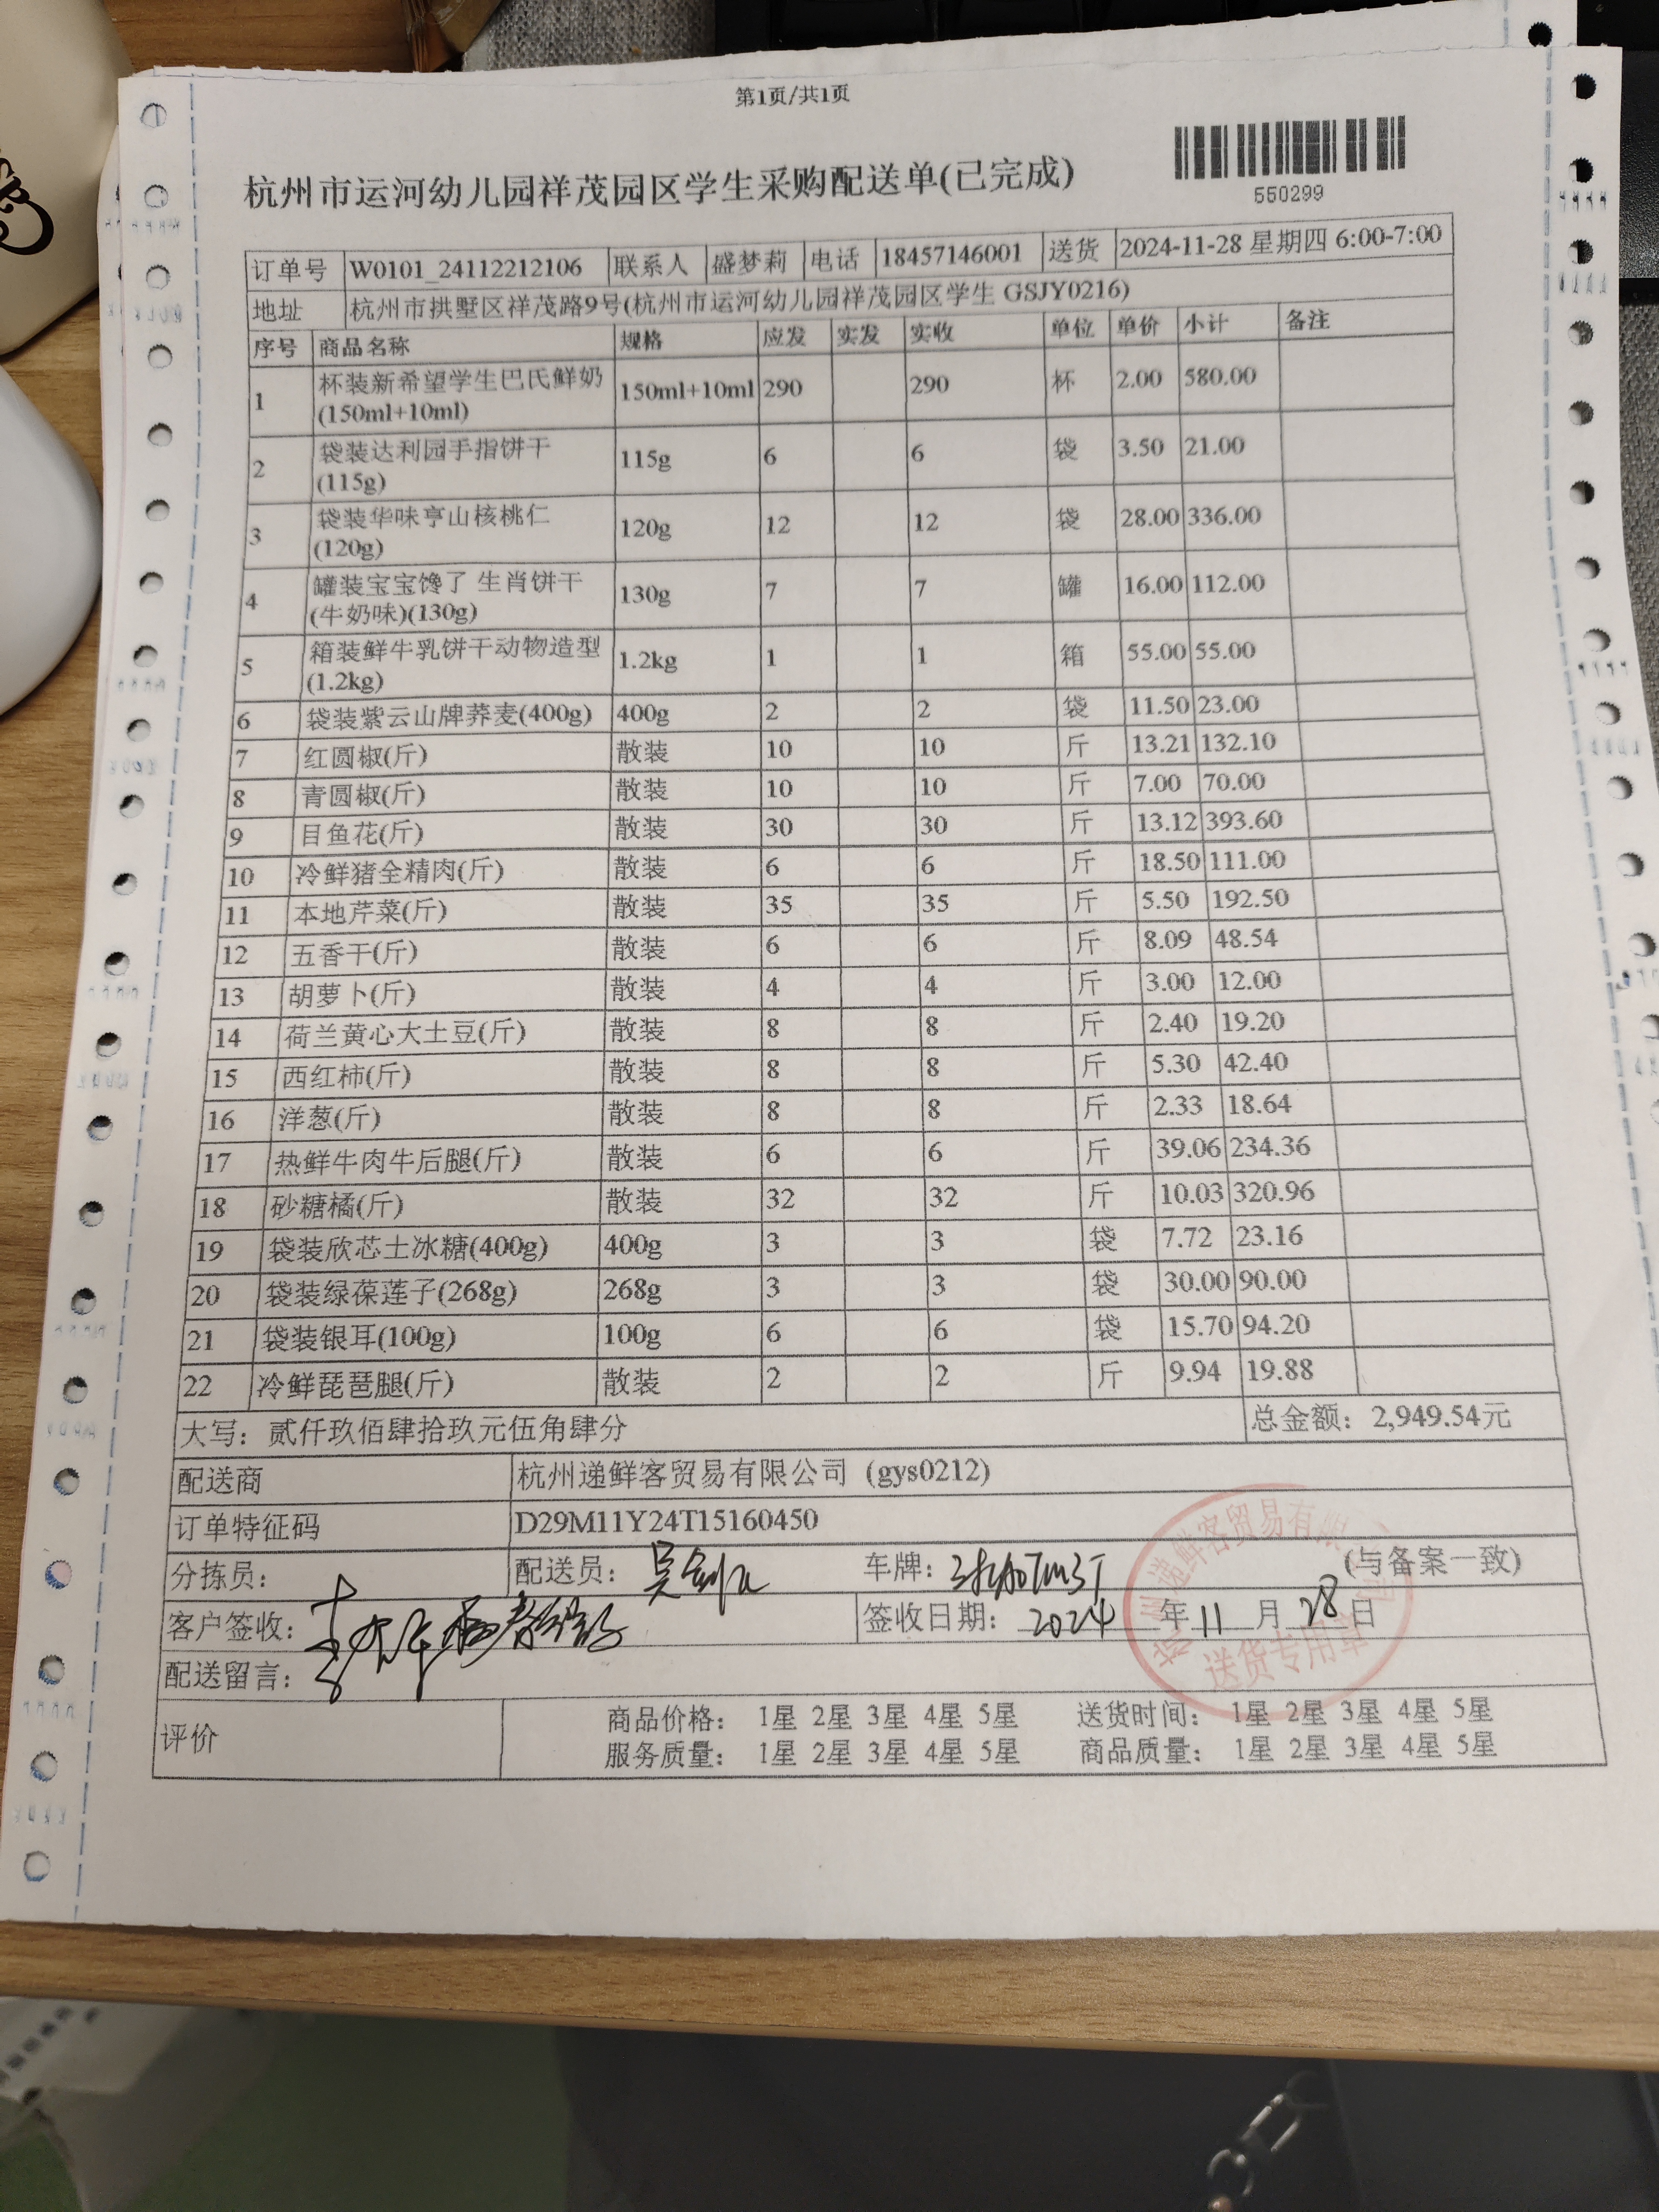 第1页/共1页
杭州市运河幼儿园祥茂园区学生采购配送单(已完成)
550299
订单号 W0101_24112212106 联系人 盛梦莉 电话 18457146001 送货 2024-11-28 星期四 6:00-7:00
地址 杭州市拱墅区祥茂路9号(杭州市运河幼儿园祥茂园区学生 GSJY0216)
序号 商品名称 规格 应发 实发 实收 单位 单价 小计 备注
1 杯装新希望学生巴氏鲜奶 150ml+10ml 290 290 杯 2.00 580.00
(150ml+10ml)
2 袋装达利园手指饼干 115g 6 6 袋 3.50 21.00
(115g)
3 袋装华味亨山核桃仁 120g 12 12 袋 28.00 336.00
(120g)
4 罐装宝宝馋了 生肖饼干 130g 7 7 罐 16.00 112.00
(牛奶味)(130g)
5 箱装鲜牛乳饼干动物造型 1.2kg 1 1 箱 55.00 55.00
(1.2kg)
6 袋装紫云山牌荞麦(400g) 400g 2 2 袋 11.50 23.00
7 红圆椒(斤) 散装 10 10 斤 13.21 132.10
8 青圆椒(斤) 散装 10 10 斤 7.00 70.00
9 目鱼花(斤) 散装 30 30 斤 13.12 393.60
10 冷鲜猪全精肉(斤) 散装 6 6 斤 18.50 111.00
11 本地芹菜(斤) 散装 35 35 斤 5.50 192.50
12 五香干(斤) 散装 6 6 斤 8.09 48.54
13 胡萝卜(斤) 散装 4 4 斤 3.00 12.00
14 荷兰黄心大土豆(斤) 散装 8 8 斤 2.40 19.20
15 西红柿(斤) 散装 8 8 斤 5.30 42.40
16 洋葱(斤) 散装 8 8 斤 2.33 18.64
17 热鲜牛肉牛后腿(斤) 散装 6 6 斤 39.06 234.36
18 砂糖橘(斤) 散装 32 32 斤 10.03 320.96
19 袋装欣芯土冰糖(400g) 400g 3 3 袋 7.72 23.16
20 袋装绿葆莲子(268g) 268g 3 3 袋 30.00 90.00
21 袋装银耳(100g) 100g 6 6 袋 15.70 94.20
22 冷鲜琵琶腿(斤) 散装 2 2 斤 9.94 19.88
大写：贰仟玖佰肆拾玖元伍角肆分 总金额：2,949.54元
配送商 杭州递鲜客贸易有限公司 (gys0212)
订单特征码 D29M11Y24T15160450
分拣员： 配送员： 车牌： (与备案一致)
客户签收： 签收日期： 2024 年 11 月 28 日
配送留言：
评价 商品价格： 1星 2星 3星 4星 5星 送货时间： 1星 2星 3星 4星 5星
服务质量： 1星 2星 3星 4星 5星 商品质量： 1星 2星 3星 4星 5星
送货专用章